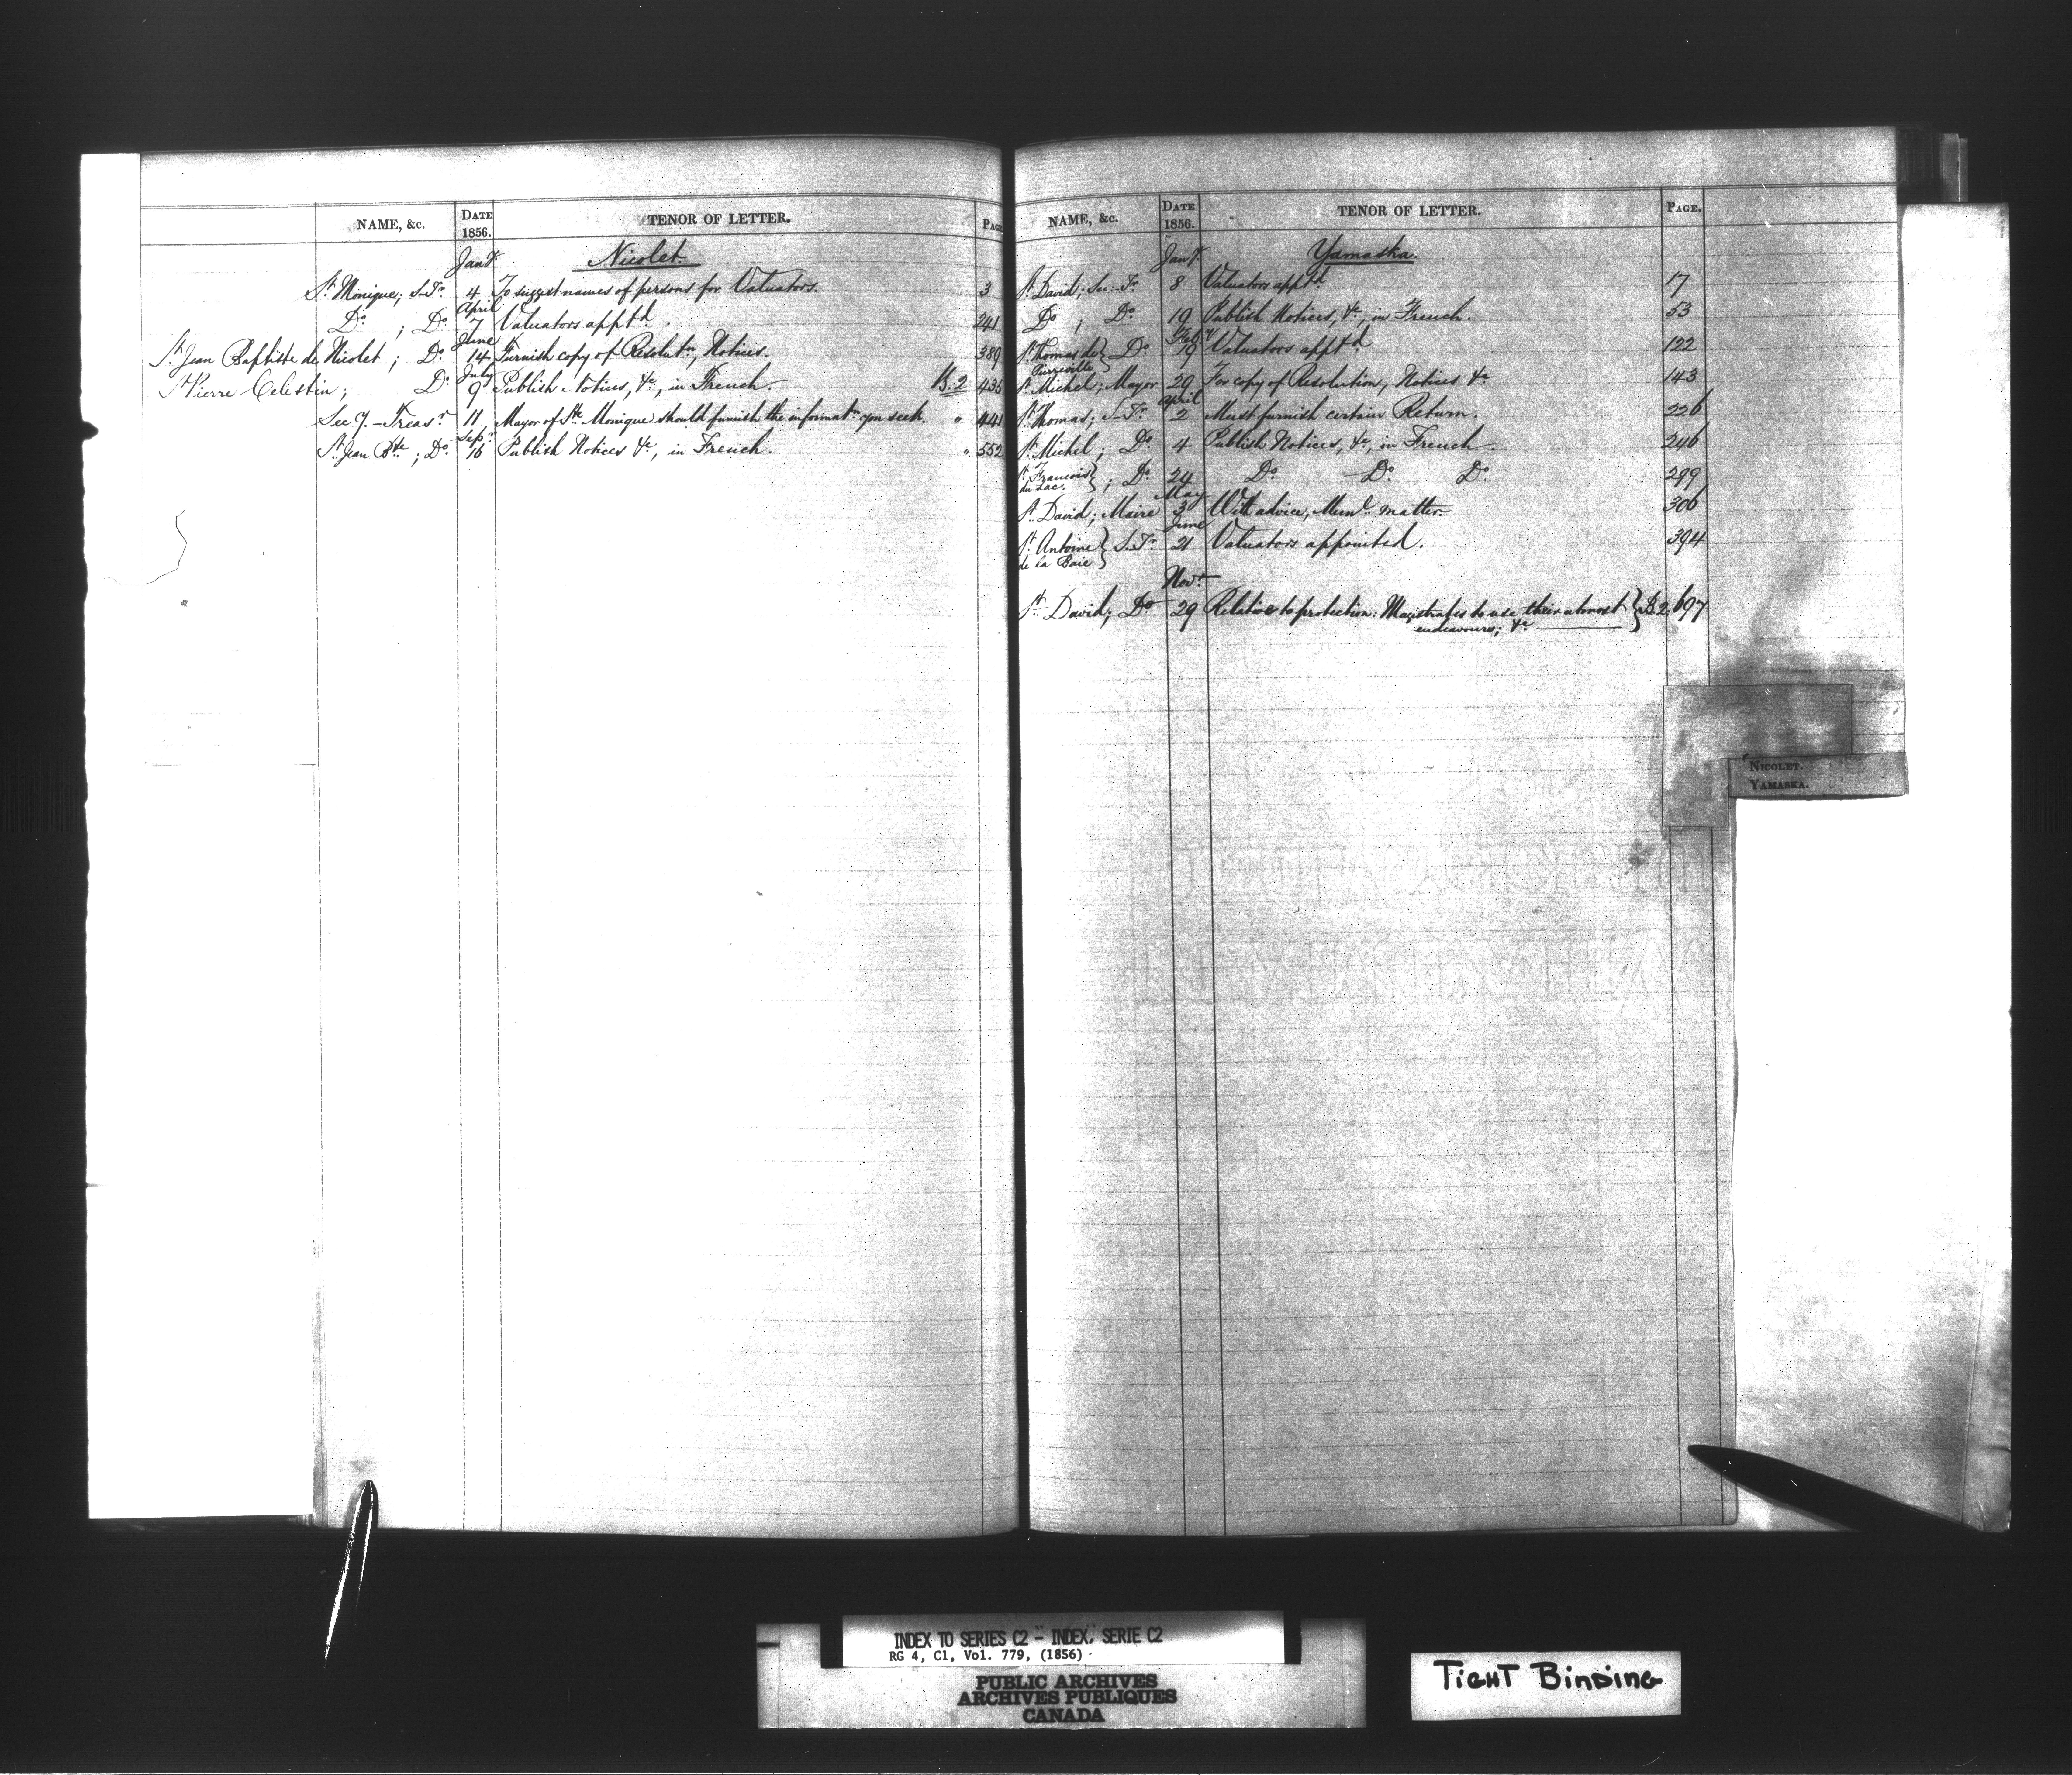 NAME, &c. DATE 1856. TENOR OF LETTER. PAGE
Jany Nicolet.
St. Monique; S-Tr. 4 To suggest names of persons for Valuators. 3
April
Do ; Do 7 Valuators apptd. 241
June
St. Jean Baptiste de Nicolet ; Do 14 Furnish copy of Resolutn, Notices. 389
July
St Pierre Celestin ; Do 9 Publish Notices, &c, in French. B.2 435
Secy.-Treasr 11 Mayor of Ste Monique should furnish the informatn you seek. " 441
Sepr
St. Jean Bte ; Do 16 Publish Notices &c, in French. " 552
NAME, &c. DATE 1856. TENOR OF LETTER. PAGE.
Jany. Yamaska.
St. David; Sec:-Tr. 8 Valuators apptd 17
Do ; Do 19 Publish Notices, &c, in French. 53
Feby
St. Thomas de Pierreville } Do 19 Valuators apptd 122
St. Michel; Mayor 29 For copy of Resolution, Notices &c 143
April
St. Thomas; S-Tr. 2 Must furnish certain Return. 226
St. Michel; Do 4 Publish Notices, &c, in French. 246
St. Francois du Lac. } ; Do 24 Do Do Do 299
May
St. David; Maire 3 With advice, Munl. matter. 306
June
St. Antoine de la Baie } S.-Tr. 21 Valuators appointed. 394
Novr
St. David; Do 29 Relative to protection: Magistrates to use their utmost } B.2. 697
endeavours; &c
NICOLET.
YAMASKA.
INDEX TO SERIES C2 - INDEX, SERIE C2
RG 4, C1, Vol. 779, (1856)
PUBLIC ARCHIVES
ARCHIVES PUBLIQUES
CANADA
TIGHT BINDING